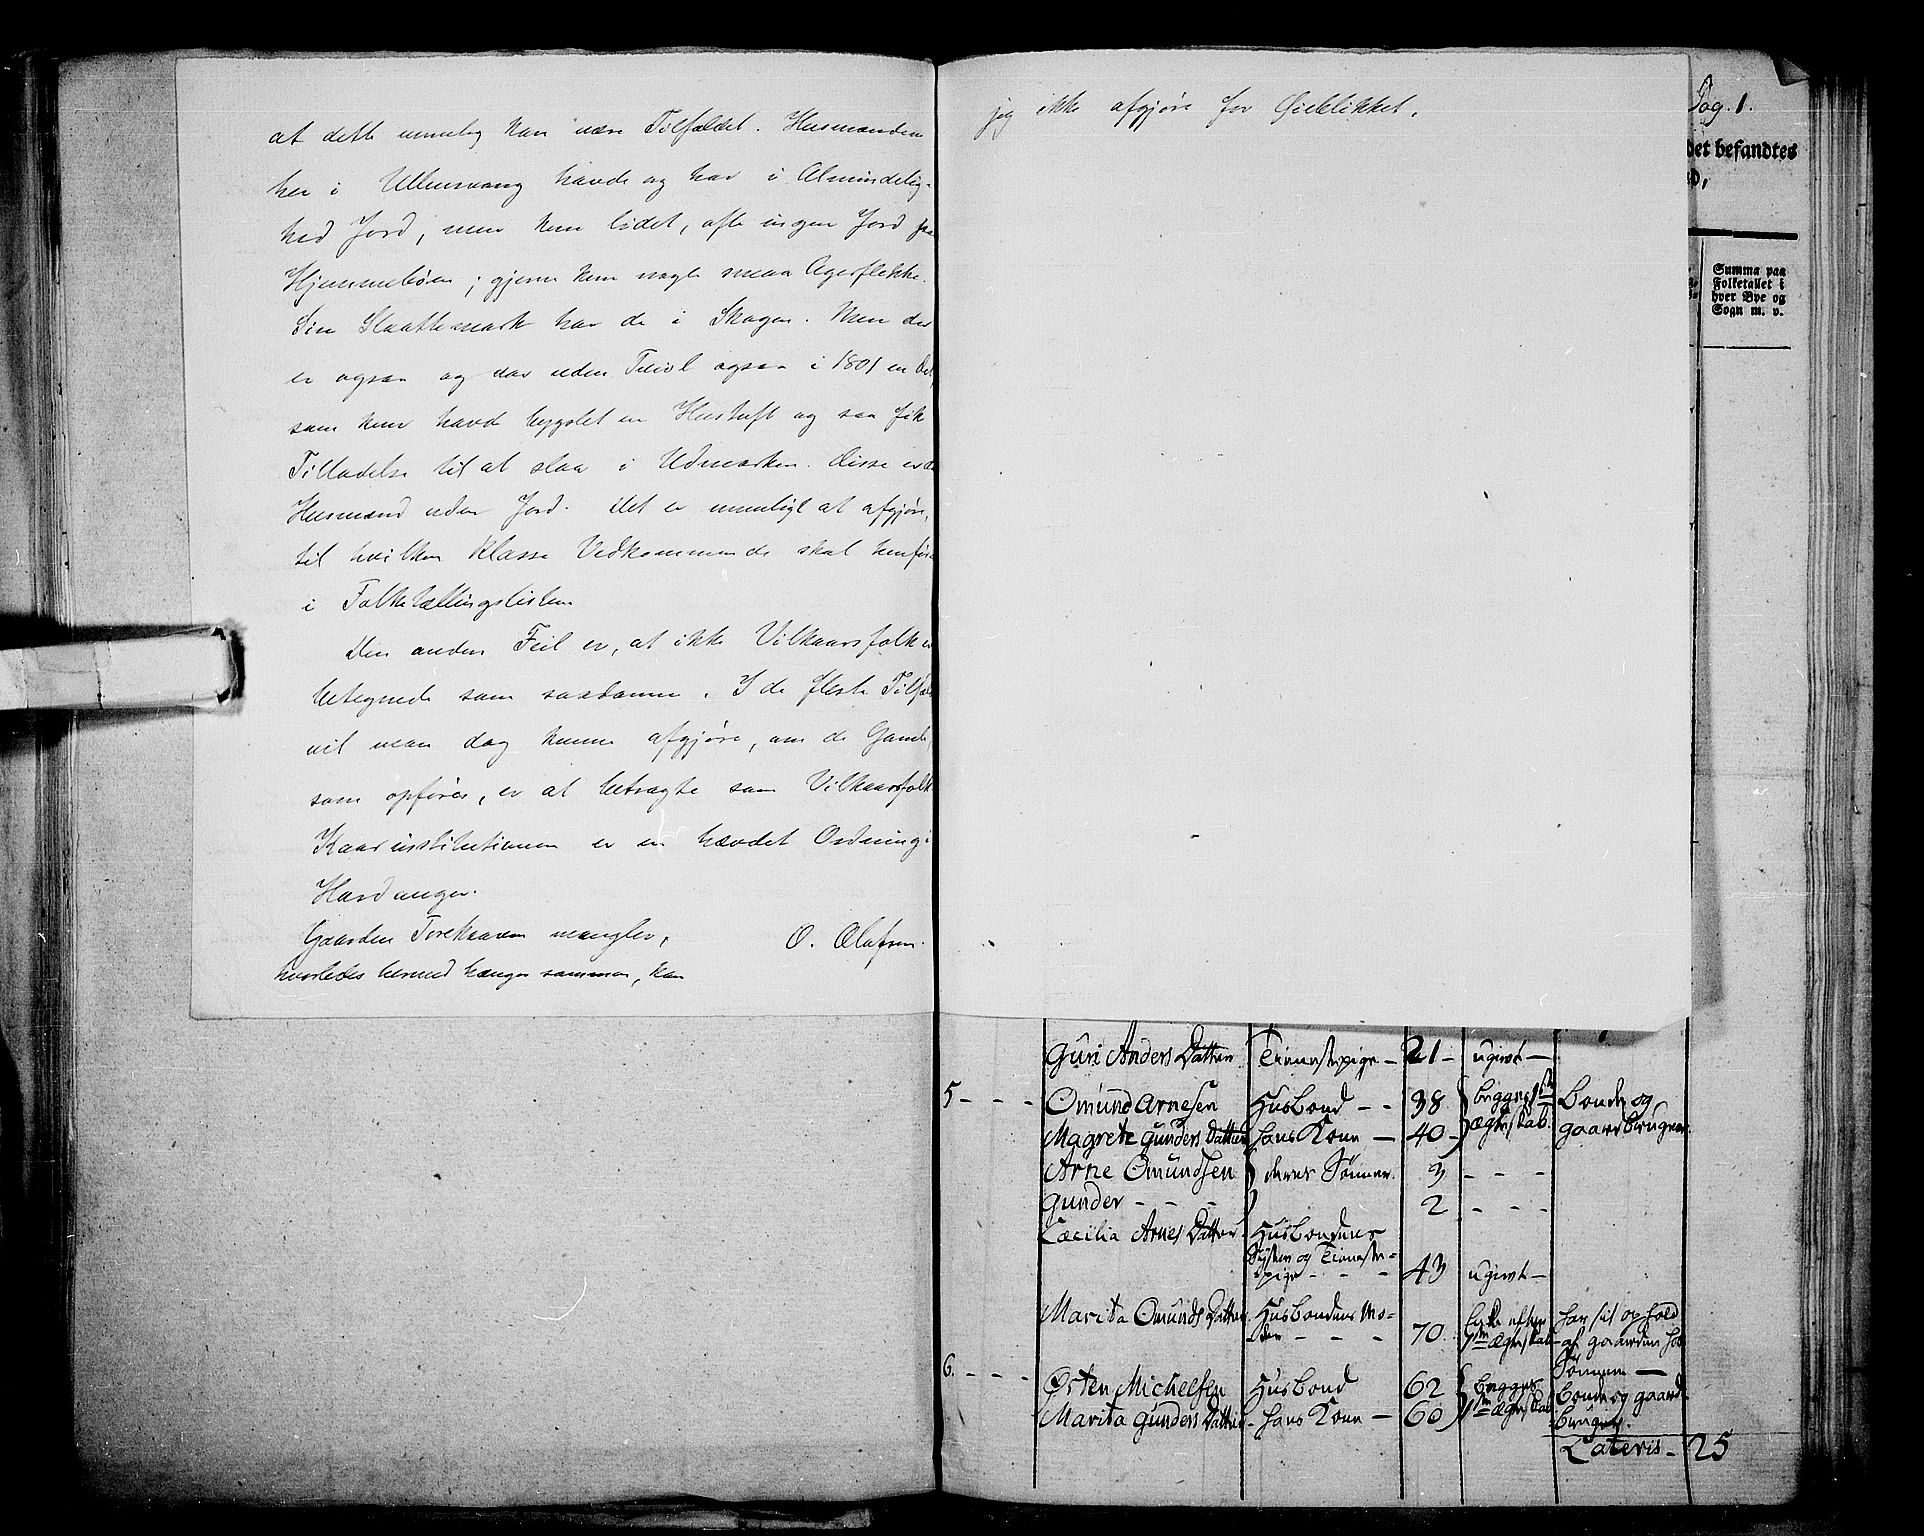 at dette umulig kan være Tilfældet. Husmændene
her i Ullensvang havde og har i Almindelig-
hed Jord, men kun lidet, ofte ingen Jord paa
Hjemmebøen; gjerne kun nogle smaa Agerflekke.
Sin Slaattemark har de i Skogen. Men der
er ogsaa og var uden Tvivl ogsaa i 1801 en Del,
som kun havde bygslet en Hustuft og saa fik
Tilladelse til at slaa i Udmarken. Disse er da
Husmænd uden Jord. Det er umuligt at afgjøre,
til hvilken Klasse Vedkommende skal henføres
i Folketællingslisten
Den anden Feil er, at ikke Vilkaarsfolk er
betegnede som saadanne. I de fleste Tilfæl
vil man dog kunne afgjøre, om de Gamle,
som opføres, er at betragte som Vilkaarsfolk
Kaarinstitutionen er en hævdet Ordning i
Hardanger.
Gaarden Torekaaven mangler,
O. Olafsen.
hvorledes hermed hænger sammen, kan
jeg ikke afgjøre for Øieblikket.
Pag. 1.
det befandtes
Summa paa
Folketallet i
hver Bye og
Sogn m. v.
Guri Anders Datter Tienestepige — 21 — ugivt —
5 - - - Omund Arnesen Husbond - - 38 begge 1ste Bonde og
Magrete Gunders Datter hans Kone — 40 - ægteskab. gaardbruger.
Arne Omundsen deres Sønner. 3 - - -
Gunder - - - 2 - - -
Cæcilia Arnes Datter Husbondens
Syster og Tieneste-
pige - - - 43 ugivt —
Marita Omunds Datter Husbondens Mo-
der - - - 70. Enke efter 1ste ægteskab har sit ophold
af gaarden hos
Sønnen —
6. - - - Østen Michelsen Husbond 62 begge Bonde og gaard-
Marita Gunders Datter hans Kone — 60 1ste ægteskab bruger.
Lateris - 25